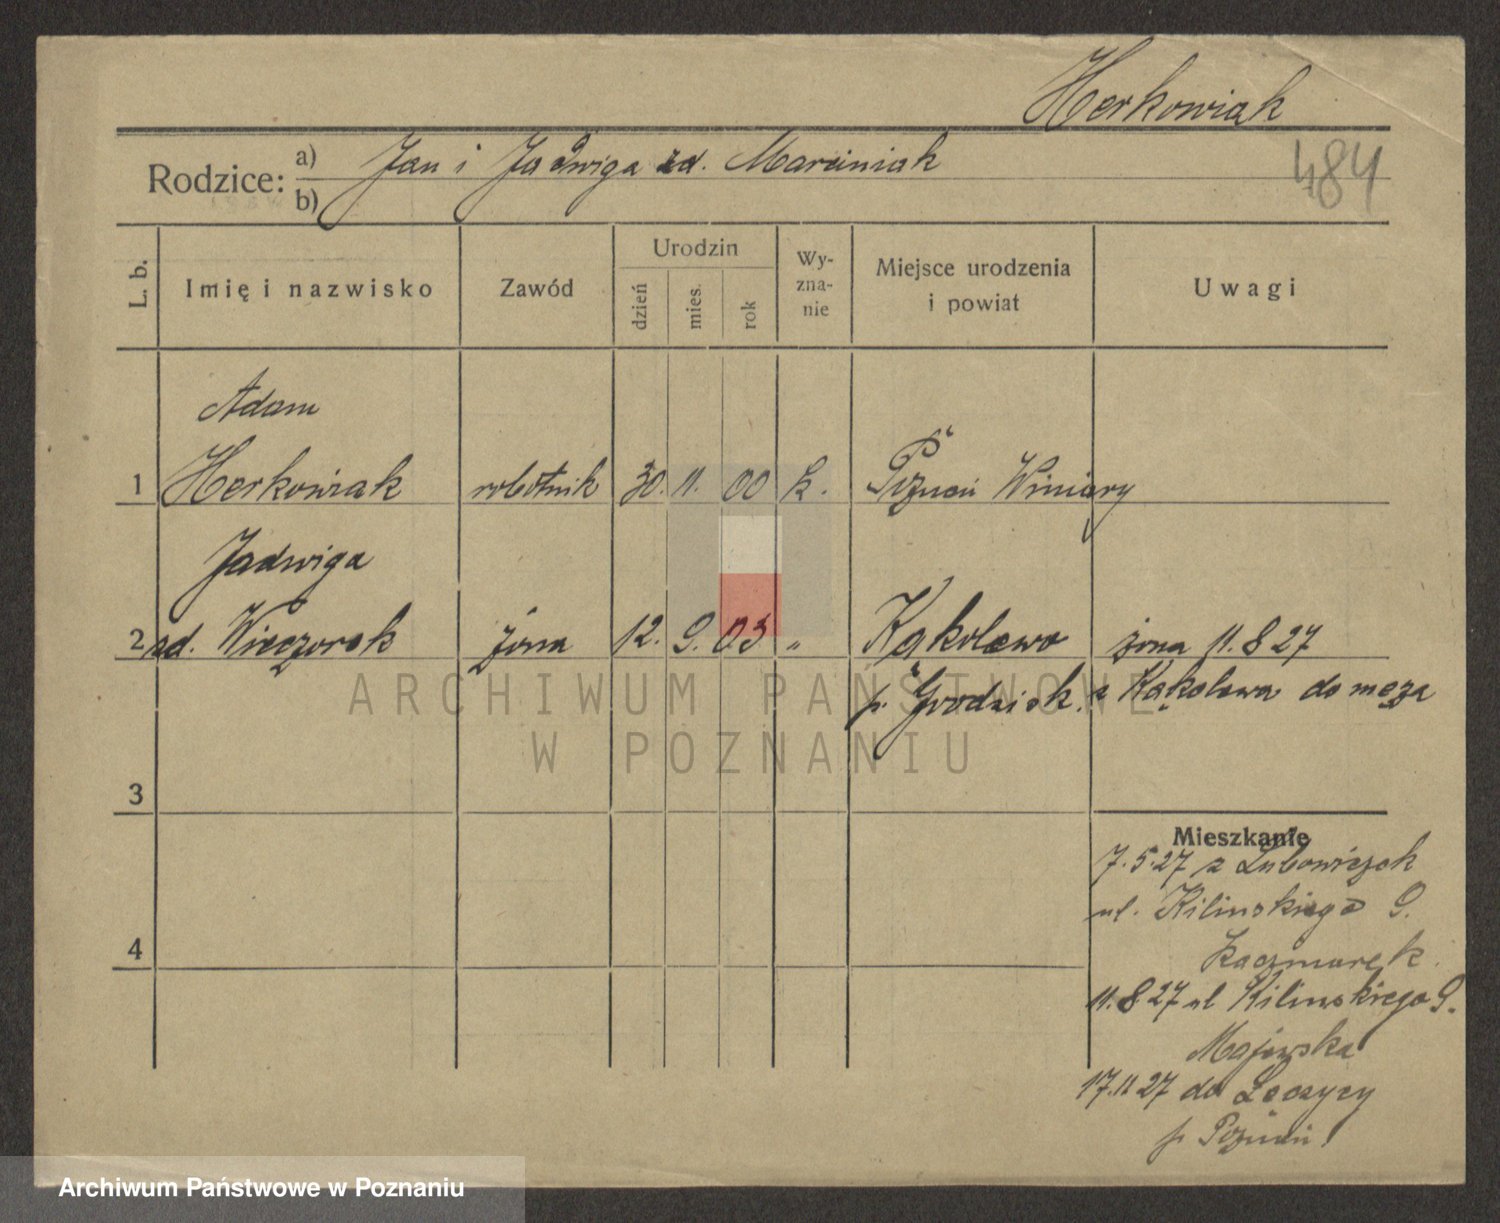 Herkowiak
Rodzice: a) Jan i Jadwiga zd. Marciniak
b)
484
L. b.
Imię i nazwisko
Zawód
Urodzin
dzień
mies.
rok
Wy-
zna-
nie
Miejsce urodzenia
i powiat
Uwagi
Adam
1 Herkowiak robotnik 30. 11. 00 k. Poznań Winiary
Jadwiga
2 zd. Wieczorek żona 12. 9. 03 " Kąkolewo żona 11.8 27
p. Grodzisk. z Kąkolewa do męża
ARCHIWUM PAŃSTWOWE
W POZNANIU
3
Mieszkanie
7.5.27 z Lubowiczek
ul. Kilinskiego 9.
4
Kaczmarek.
11.8 27 ul Kilinskiego 9.
Majewska
17.11 27 do Łęczycy
p Poznań
Archiwum Państwowe w Poznaniu